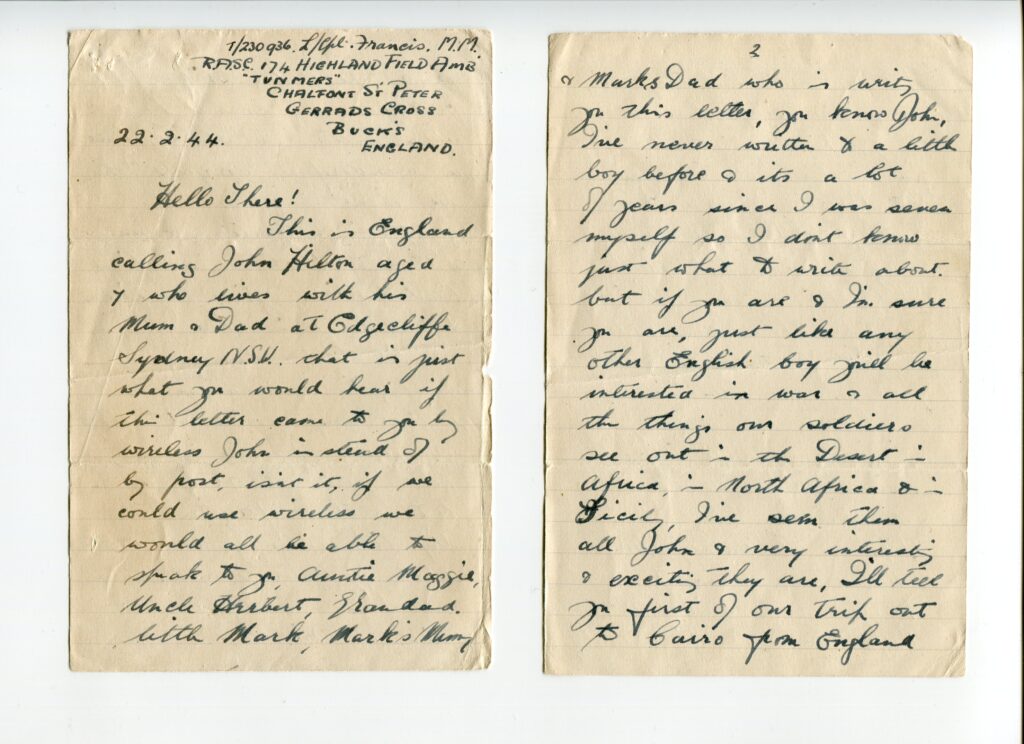 T/230936. L/Cpl. Francis. M.M.
R.A.S.C. 174 HIGHLAND FIELD AMB
"TUNMERS"
CHALFONT ST PETER
GERRADS CROSS
BUCK'S
ENGLAND.
22.2.44.
Hello There!
This is England
calling John Hilton aged
7 who lives with his
Mum & Dad at Edgecliffe
Sydney N.S.W. that is just
what you would hear if
this letter came to you by
wireless John instead of
by post, isn't it, if we
could use wireless we
would all be able to
speak to you, Auntie Maggie,
Uncle Herbert, Grandad.
little Mark, Mark's Mummy
2
& Marks Dad who is writing
you this letter, you know John,
I've never written to a little
boy before & its a lot
of years since I was seven
myself so I dont know
just what to write about.
but if you are & I'm sure
you are, just like any
other English boy you'll be
interested in war & all
the things our soldiers
see out in the Desert in
Africa, in North Africa & in
Sicily, I've seen them
all John & very interesting
& exciting they are, I'll tell
you first of our trip out
to Cairo from England